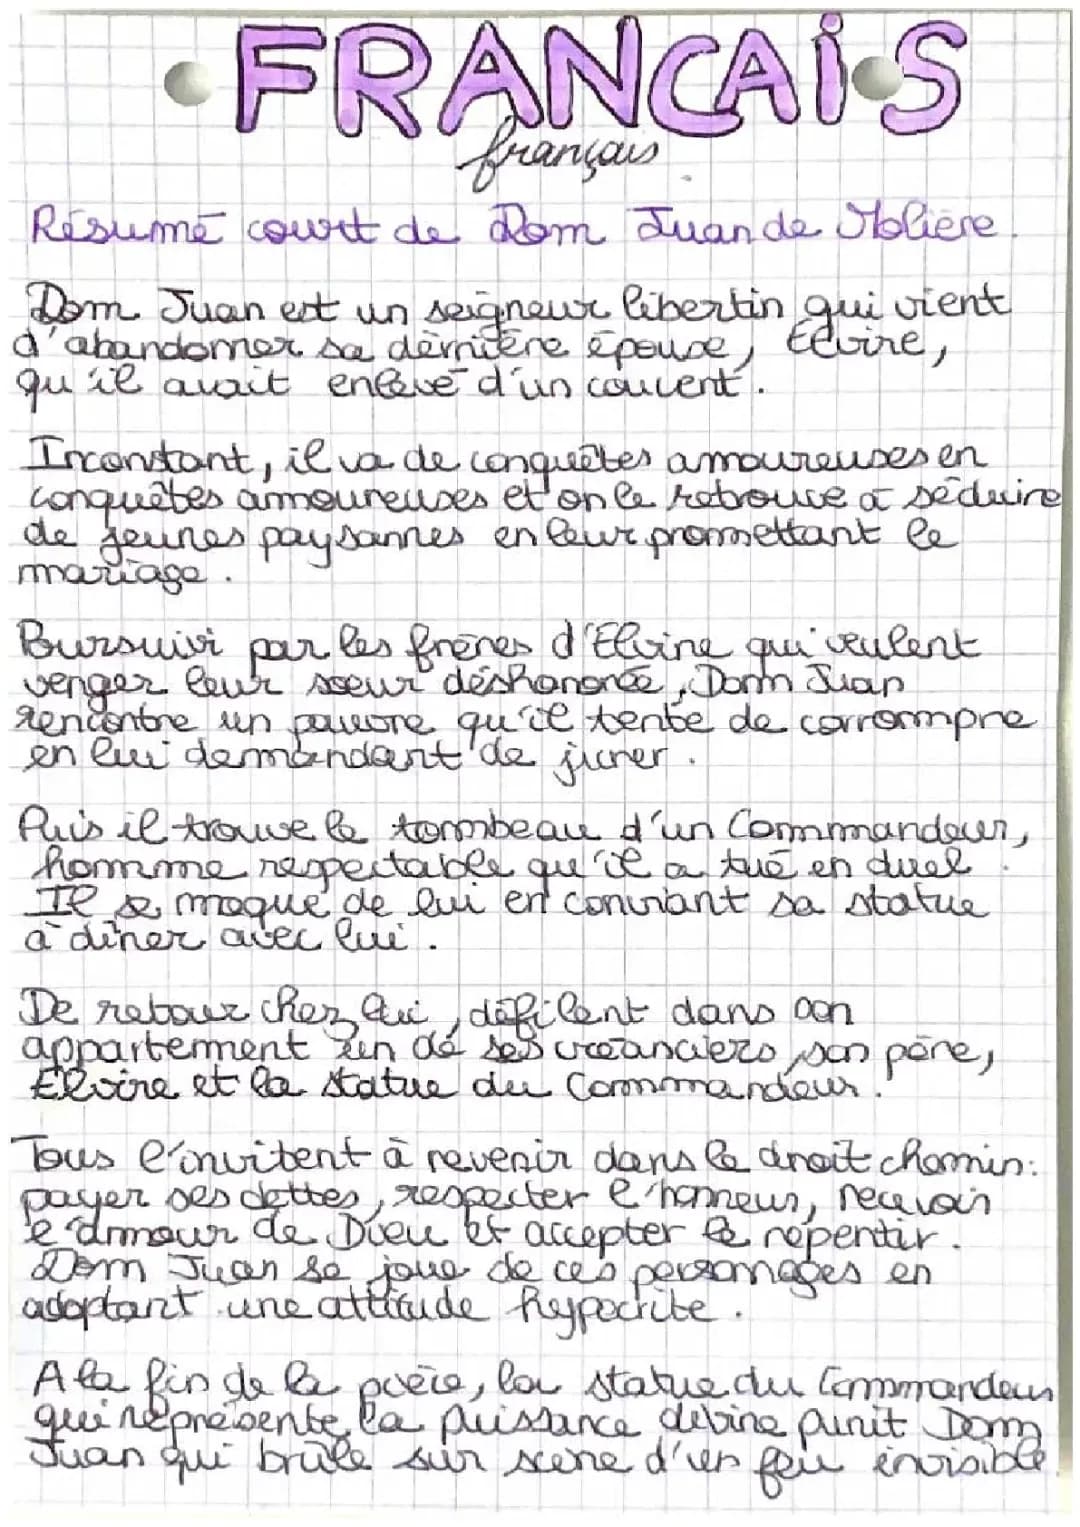 FRANCAIS
français
Résumé court de Dom Juan de Molière.
Dom Juan est un seigneur libertin qui vient
d'abandonner sa dernière épouse, Elvire,
qu'il avait enlevé d'un couvent.
Inconstant, il va de conquêtes amoureuses en
conquêtes amoureuses et on le retrouve à séduire
de jeunes paysannes en leur promettant le
mariage.
Poursuivi par les frères d'Elvire qui veulent
venger leur soeur déshonorée, Dom Juan
rencontre un pauvre qu'il tente de corrompre
en lui demandant de jurer.
Puis il trouve le tombeau d'un Commandeur,
homme respectable qu'il a tué en duel.
Il se moque de lui en conviant sa statue
à dîner avec lui.
De retour chez lui, défilent dans son
appartement un de ses créanciers, son père,
Elvire et la statue du Commandeur.
Tous l'invitent à revenir dans le droit chemin:
payer ses dettes, respecter l'honneur, recevoir
l'amour de Dieu et accepter le repentir.
Dom Juan se joue de ces personnages en
adoptant une attitude hypocrite.
A la fin de la pièce, la statue du Commandeur
qui représente la puissance divine punit Dom
Juan qui brûle sur scène d'un feu invisible